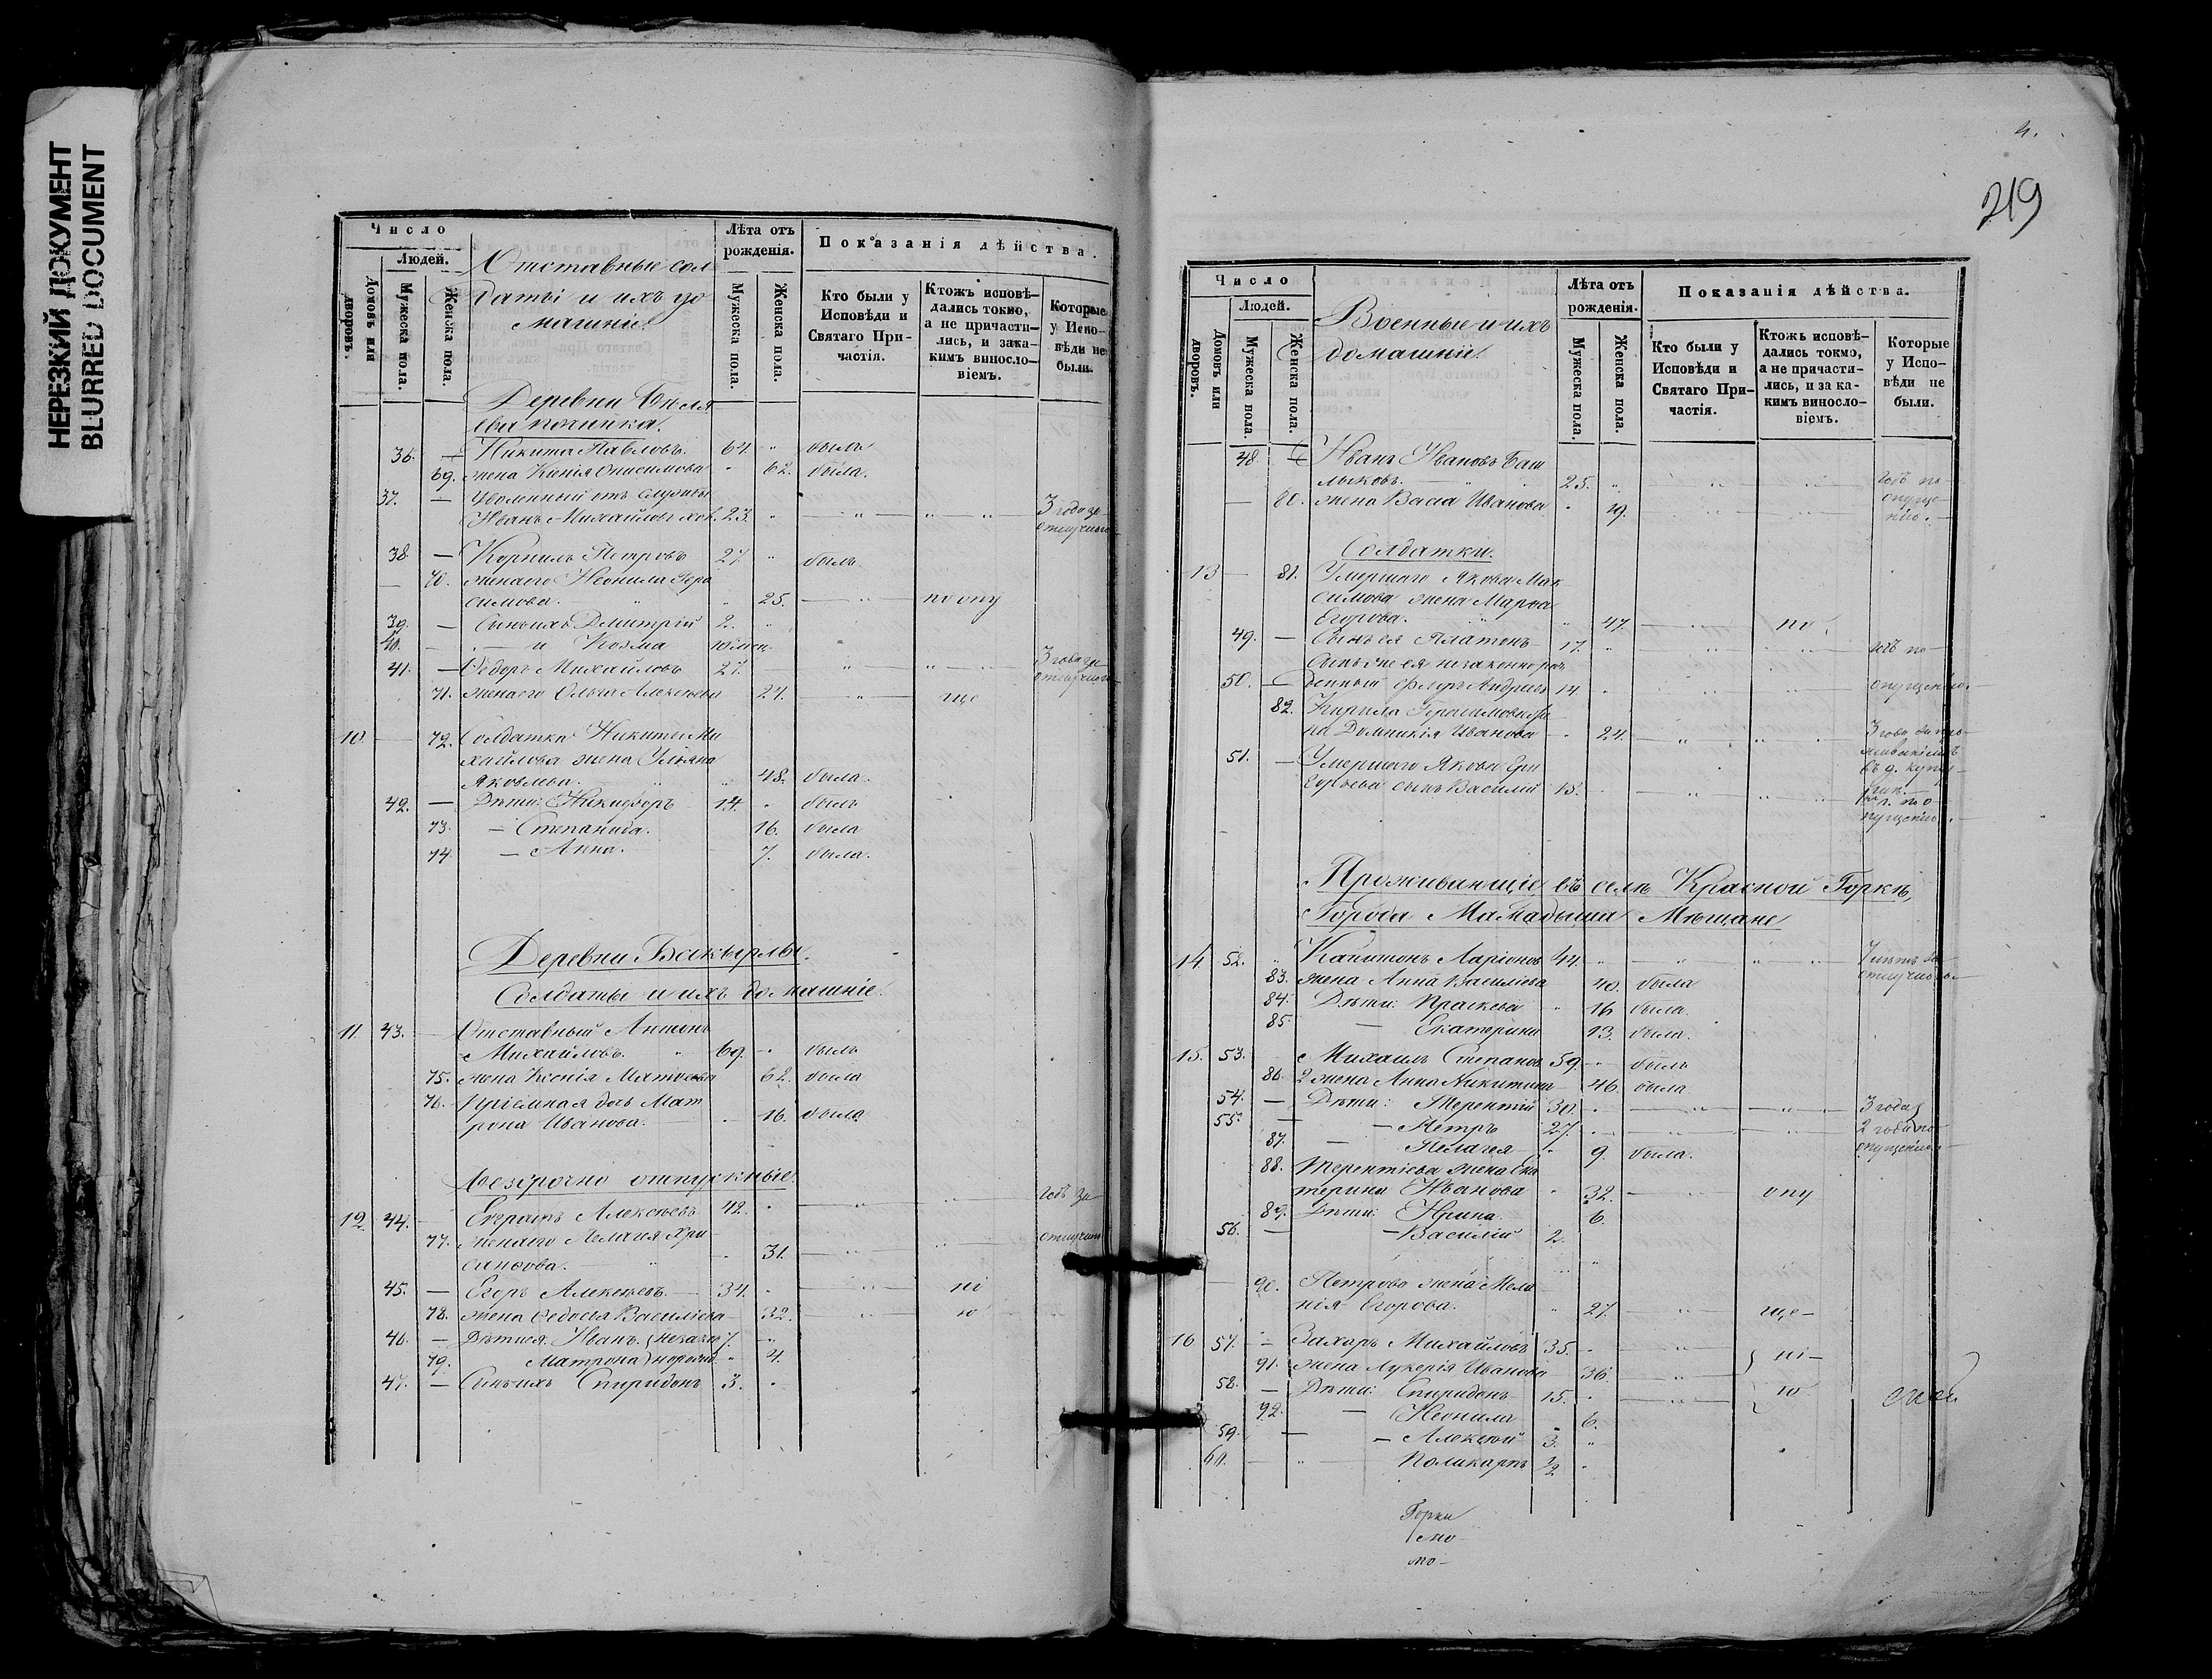 НЕРЕЗКИЙ ДОКУМЕНТ
BLURRED DOCUMENT
Число
Людей.
Домовъ или дворовъ.
Мужеска пола.
Женска пола.
Отставные сол
даты и ихъ до
машніе.
Лѣта отъ рожденія.
Мужеска пола.
Женска пола.
Показанія дѣйства.
Кто были у Исповѣди и Святаго Причастія.
Ктожъ исповѣдались токмо, а не причастились, и за какимъ винословіемъ.
Которые у Исповѣди не были.
Деревни
починка.
36. — Никита Павловъ. 64. " былъ
69. жена Ксенія Онисимова " 62. была.
37. — Уволенный отъ службы
Иванъ Михайловъ 23. " — " — " — " — 3 года за
отлучкою
38 — Корнилъ Петровъ 27 " былъ
— 70. жена его Неонила Гера
симова. " " 25. — " — по опу
39. — Сынъ ихъ Дмитрій 2. "
40. — и Козма
41. — Ѳедоръ Михайловъ 27. " " — " 3 года за
отлучкою
71. жена его Ольга Алексѣева 27. — " — ще
10 — 72. Солдатка Никиты Ми
хайлова жена Ульяна
Яковлева. " " 48. была.
42. — Дѣти: Никифоръ 14. " былъ
73. — Степанида. 16. была
74. — Анна. 7. была.
Деревни Бакырлы.
Солдаты и ихъ домашніе.
11 43. — Отставный Антонъ
Михайловъ. " 69. " былъ
75. жена Ксенія Матвѣева 62. была
76. Пріемная дочь Мат
рона Иванова. — 16. была.
Безсрочно отпускные.
12. 44. — Евграфъ Алексѣевъ 42. " — " — " — годъ за
77. жена его Пелагея Хри
санѳова. " 31. — " — " отлучкою
45. — Егоръ Алексѣевъ. 34. " — " — ні
78. жена Ѳедосья Васильева 32. " ю
46. — Дѣти ея: Иванъ. (незако 7. "
79. Матрона) норожд. " 4.
47. — Сынъ ихъ Спиридонъ 3. "
4.
219
Число
Людей.
Домовъ или дворовъ.
Мужеска пола.
Женска пола.
Военные и ихъ
домашніе.
Лѣта отъ рожденія.
Мужеска пола.
Женска пола.
Показанія дѣйства.
Кто были у Исповѣди и Святаго Причастія.
Ктожъ исповѣдались токмо, а не причастились, и за какимъ винословіемъ.
Которые у Исповѣди не были.
48. — Иванъ Ивановъ Баш
лыковъ. — " 25. " " " годъ по
— 80. жена Васса Иванова " 19. опуще
нію. —
Солдатки.
13 — 81. Умершаго Якова Мак
симова жена Марѳа
Егорова. " " 47. — " — по
49. — Сынъ ея Платонъ 17. " — " — " — годъ по
Сынъ же ея незаконорож
50. — денный Флоръ Андреевъ 14. " — " — " — опущенію.
82. Кирила Герасимова же
на Домникія Иванова — 24. — " — " — 3 года за про
живаніемъ
51. — Умершаго Якова Гри
горьева сынъ Василій 15. " — " — " — по о
пущенію. —
Проживающіе въ селѣ Красной Горкѣ,
Города Мамадыша Мѣщане
14 52. " Капитонъ Ларіоновъ 44. " — " — " — 7 лѣтъ за
83. жена Анна Васильева 40. была отлучкою —
84. Дѣти: Праскева " 16 была.
85. — Екатерина 13. была.
15. 53. — Михаилъ Степановъ 59. " былъ
86. 2 жена Анна Никитина 46. была
54. — Дѣти: Терентій 30. " — " — " — 3 года
55. — — Петръ 27. " — " — " 2 года по
87. — Пелагея " 9. была. опущенію
88. Терентіева жена Ека
терина Иванова " 32. — " — опу
89. Дѣти: Ирина. 6.
56. — — Василій 2. "
90. Петрова жена Мела
нія Егорова. " 27. — " — ще —
16 57. — Захаръ Михайловъ 35. " — " — } ні —
91. жена Лукерія Иванова 36. "
58. — Дѣти: Спиридонъ 15. " — " — ю
92. — Неонила 6.
59. — — Алексѣй 3. "
60. — " — Поликарпъ 1/2 "
Горки